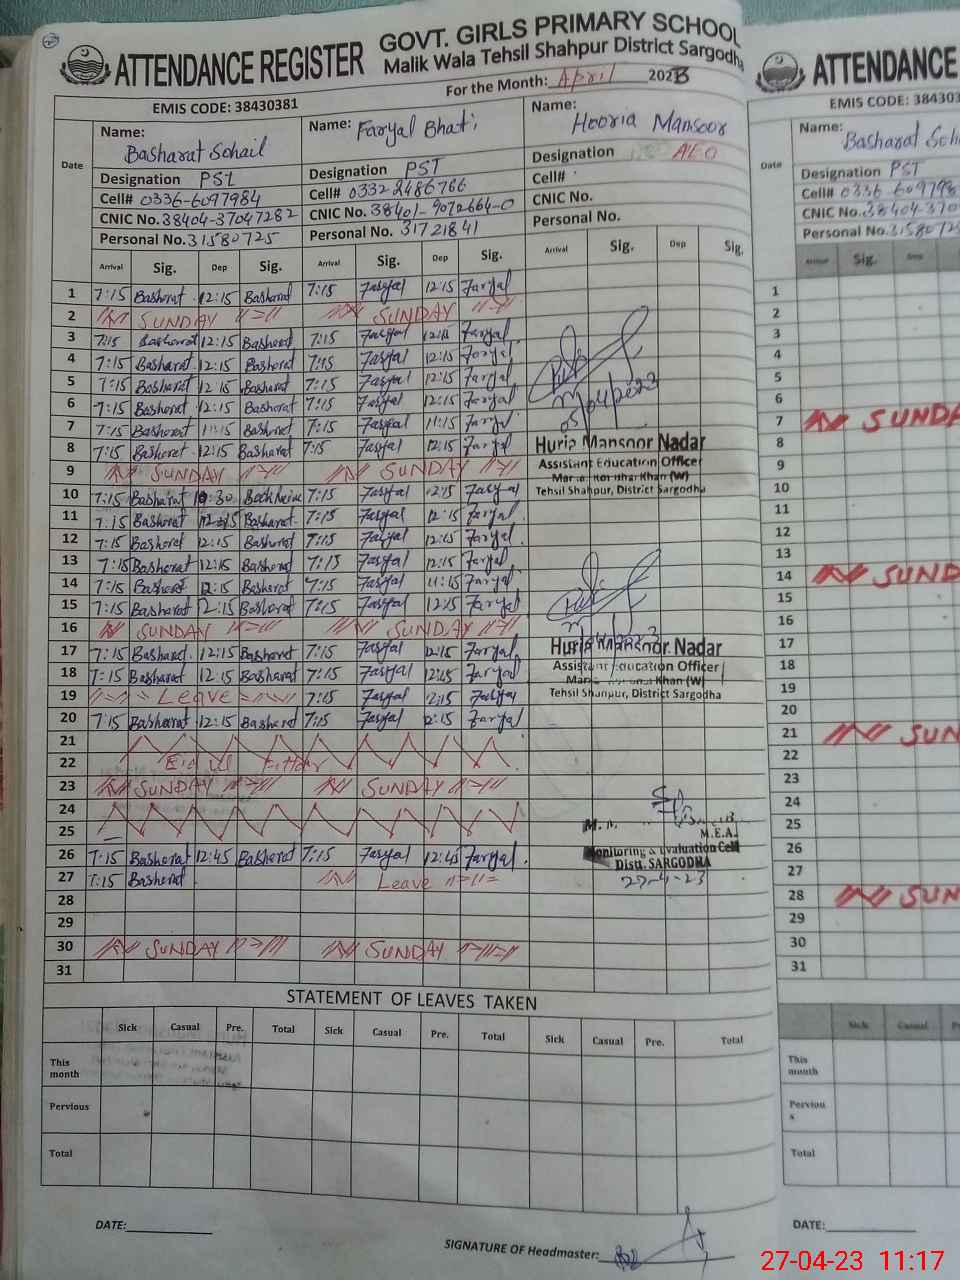 ATTENDANCE REGISTER
GOVT. GIRLS PRIMARY SCHOOL
Malik Wala Tehsil Shahpur District Sargodha
For the Month: April 2023
EMIS CODE: 38430381
Date
Name: Basharat Sohail
Name: Faryal Bhatti
Name: Hooria Mansoor
Designation PST
Designation PST
Designation AEO
Cell# 0336-6097984
Cell# 0332 2486766
Cell#
CNIC No. 38404-37047282
CNIC No. 38401-9072664-0
CNIC No.
Personal No. 31580725
Personal No. 31721841
Personal No.
Arrival Sig. Dep Sig. Arrival Sig. Dep Sig. Arrival Sig. Dep Sig.
1 7:15 Basharat 12:15 Basharat 7:15 Faryal 12:15 Faryal
2 SUNDAY SUNDAY
3 7:15 Basharat 12:15 Basharat 7:15 Faryal 12:15 Faryal
4 7:15 Basharat 12:15 Basharat 7:15 Faryal 12:15 Faryal
5 7:15 Basharat 12:15 Basharat 7:15 Faryal 12:15 Faryal
6 7:15 Basharat 12:15 Basharat 7:15 Faryal 12:15 Faryal
7 7:15 Basharat 11:15 Basharat 7:15 Faryal 11:15 Faryal
8 7:15 Basharat 12:15 Basharat 7:15 Faryal 12:15 Faryal
Huria Mansoor Nadar
Assistant Education Officer
Khan (W)
Tehsil Shahpur, District Sargodha
9 SUNDAY SUNDAY
10 7:15 Basharat 10:30 7:15 Faryal 12:15 Faryal
11 7:15 Basharat 12:15 Basharat 7:15 Faryal 12:15 Faryal
12 7:15 Basharat 12:15 Basharat 7:15 Faryal 12:15 Faryal
13 7:15 Basharat 12:15 Basharat 7:15 Faryal 12:15 Faryal
14 7:15 Basharat 12:15 Basharat 7:15 Faryal 11:15 Faryal
15 7:15 Basharat 12:15 Basharat 7:15 Faryal 12:15 Faryal
16 SUNDAY SUNDAY
17 7:15 Basharat 12:15 Basharat 7:15 Faryal 12:15 Faryal
Huria Mansoor Nadar
Assistant Education Officer
Khan (W)
Tehsil Shahpur, District Sargodha
18 7:15 Basharat 12:15 Basharat 7:15 Faryal 12:45 Faryal
19 Leave 7:15 Faryal 12:15 Faryal
20 7:15 Basharat 12:15 Basharat 7:15 Faryal 12:15 Faryal
21
22 Eid ul Fitter
23 SUNDAY SUNDAY
24
25
M.E.A.
Monitoring & Evaluation Cell
Distt. SARGODHA
27-4-23
26 7:15 Basharat 12:45 Basharat 7:15 Faryal 12:45 Faryal
27 7:15 Basharat Leave
28
29
30 SUNDAY SUNDAY
31
STATEMENT OF LEAVES TAKEN
Sick Casual Pre. Total Sick Casual Pre. Total Sick Casual Pre. Total
This month
Pervious
Total
DATE:
SIGNATURE OF Headmaster:
ATTENDANCE
EMIS CODE: 38430
Date
Name: Basharat Soh
Designation PST
Cell# 0336-609798
CNIC No. 38404-370
Personal No. 3158072
Arrival Sig. Dep
1
2
3
4
5
6
7 SUNDA
8
9
10
11
12
13
14 SUND
15
16
17
18
19
20
21 SUN
22
23
24
25
26
27
28 SUN
29
30
31
Sick Casual
This month
Perviou
s
Total
DATE:
27-04-23 11:17